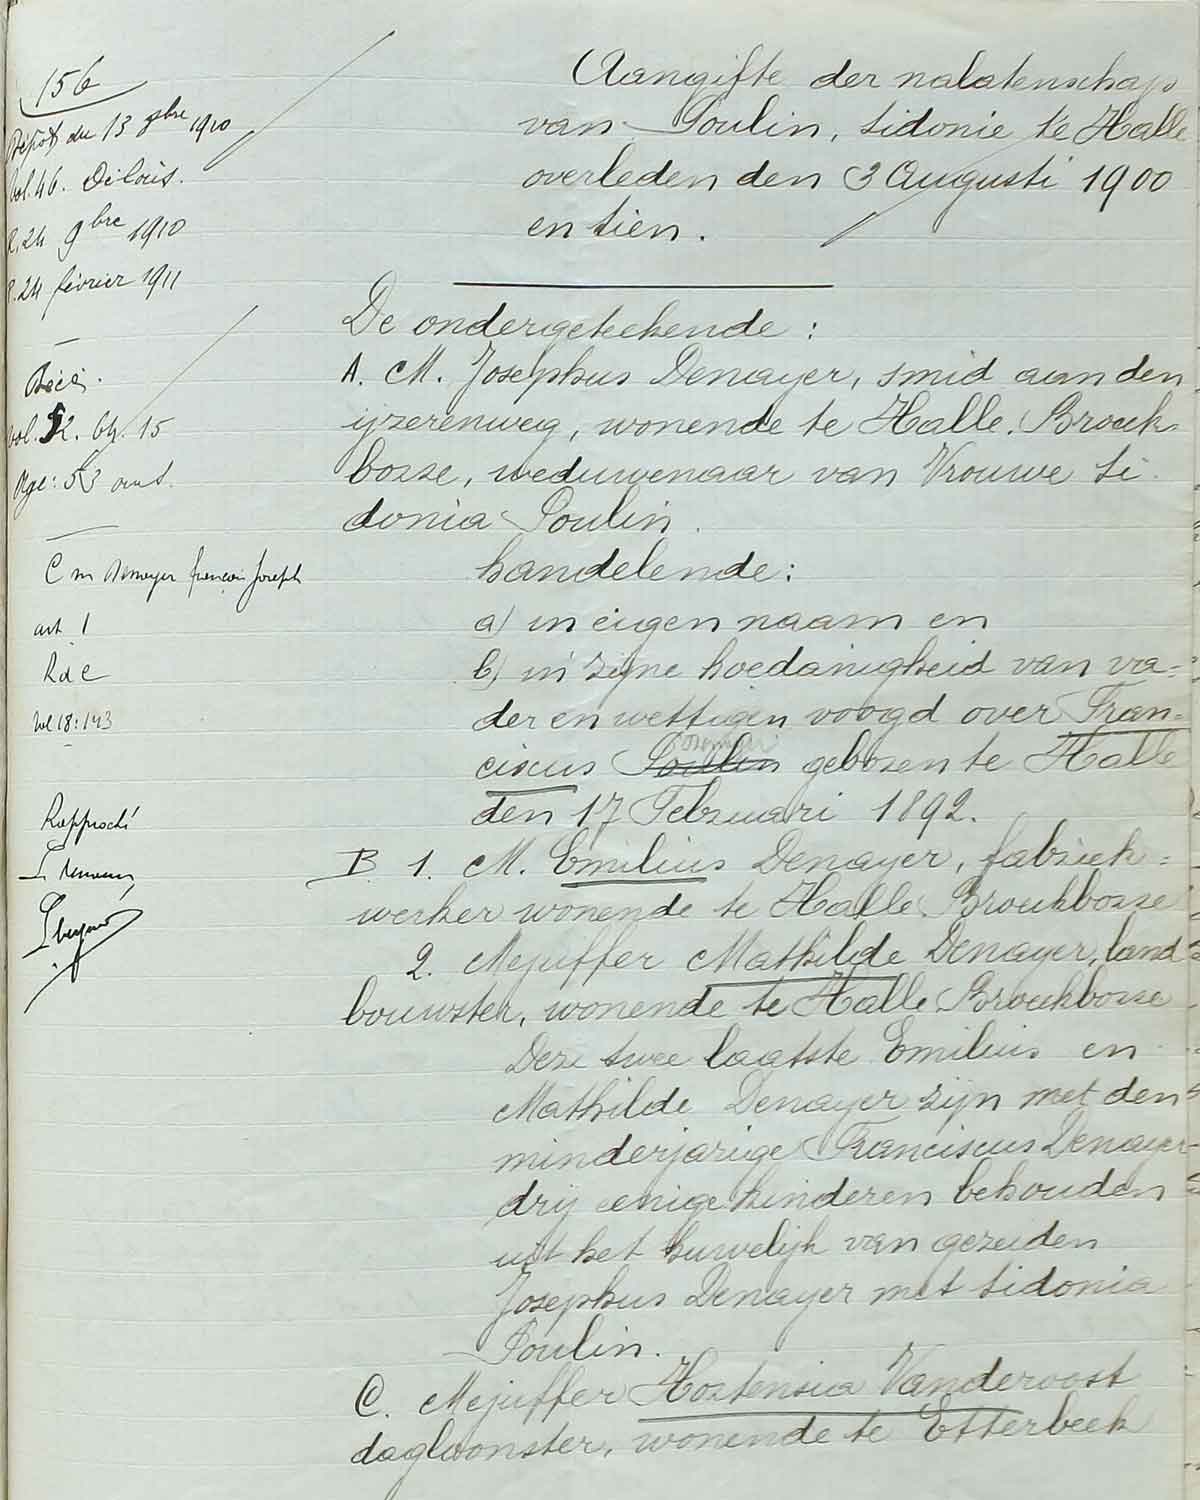 156
Dépôt du 13 9bre 1910
vol. 46. Decl
R. 24 9bre 1910
P. 24 février 1911
Décès.
vol. 52. 64. 15
Age: 53 ans.
C m Denayer françois Joseph
art 1
R d C
Vol 18: 143
Rapproché
Aangifte der nalatenschap
van Poulin, Sidonie te Halle
overleden den 3 Augusti 1900
en tien.
De ondergeteekende:
A. M. Josephus Denayer, smid aan den
ijzerenweg, wonende te Halle. Brouck-
bosse, weduwenaar van Vrouwe Si
donia Poulin.
handelende:
a) in eigen naam en
b) in zijne hoedanigheid van va-
der en wettigen voogd over Fran-
ciscus Poulin geboren te Halle
den 17 Februari 1892.
B. 1. M. Emilius Denayer, fabriek=
werker wonende te Halle Brouckbosse
2. Mejuffer Mathilde Denayer, land
bouwster, wonende te Halle Brouckbosse
Deze twee laatste Emilius en
Mathilde Denayer zijn met den
minderjarige Franciscus Denayer
drij eenige kinderen behouden
uit het huwelijk van gezeiden
Josephus Denayer met Sidonia
Poulin.
C. Mejuffer Hortensia Vanderoost
dagloonster, wonende te Etterbeek